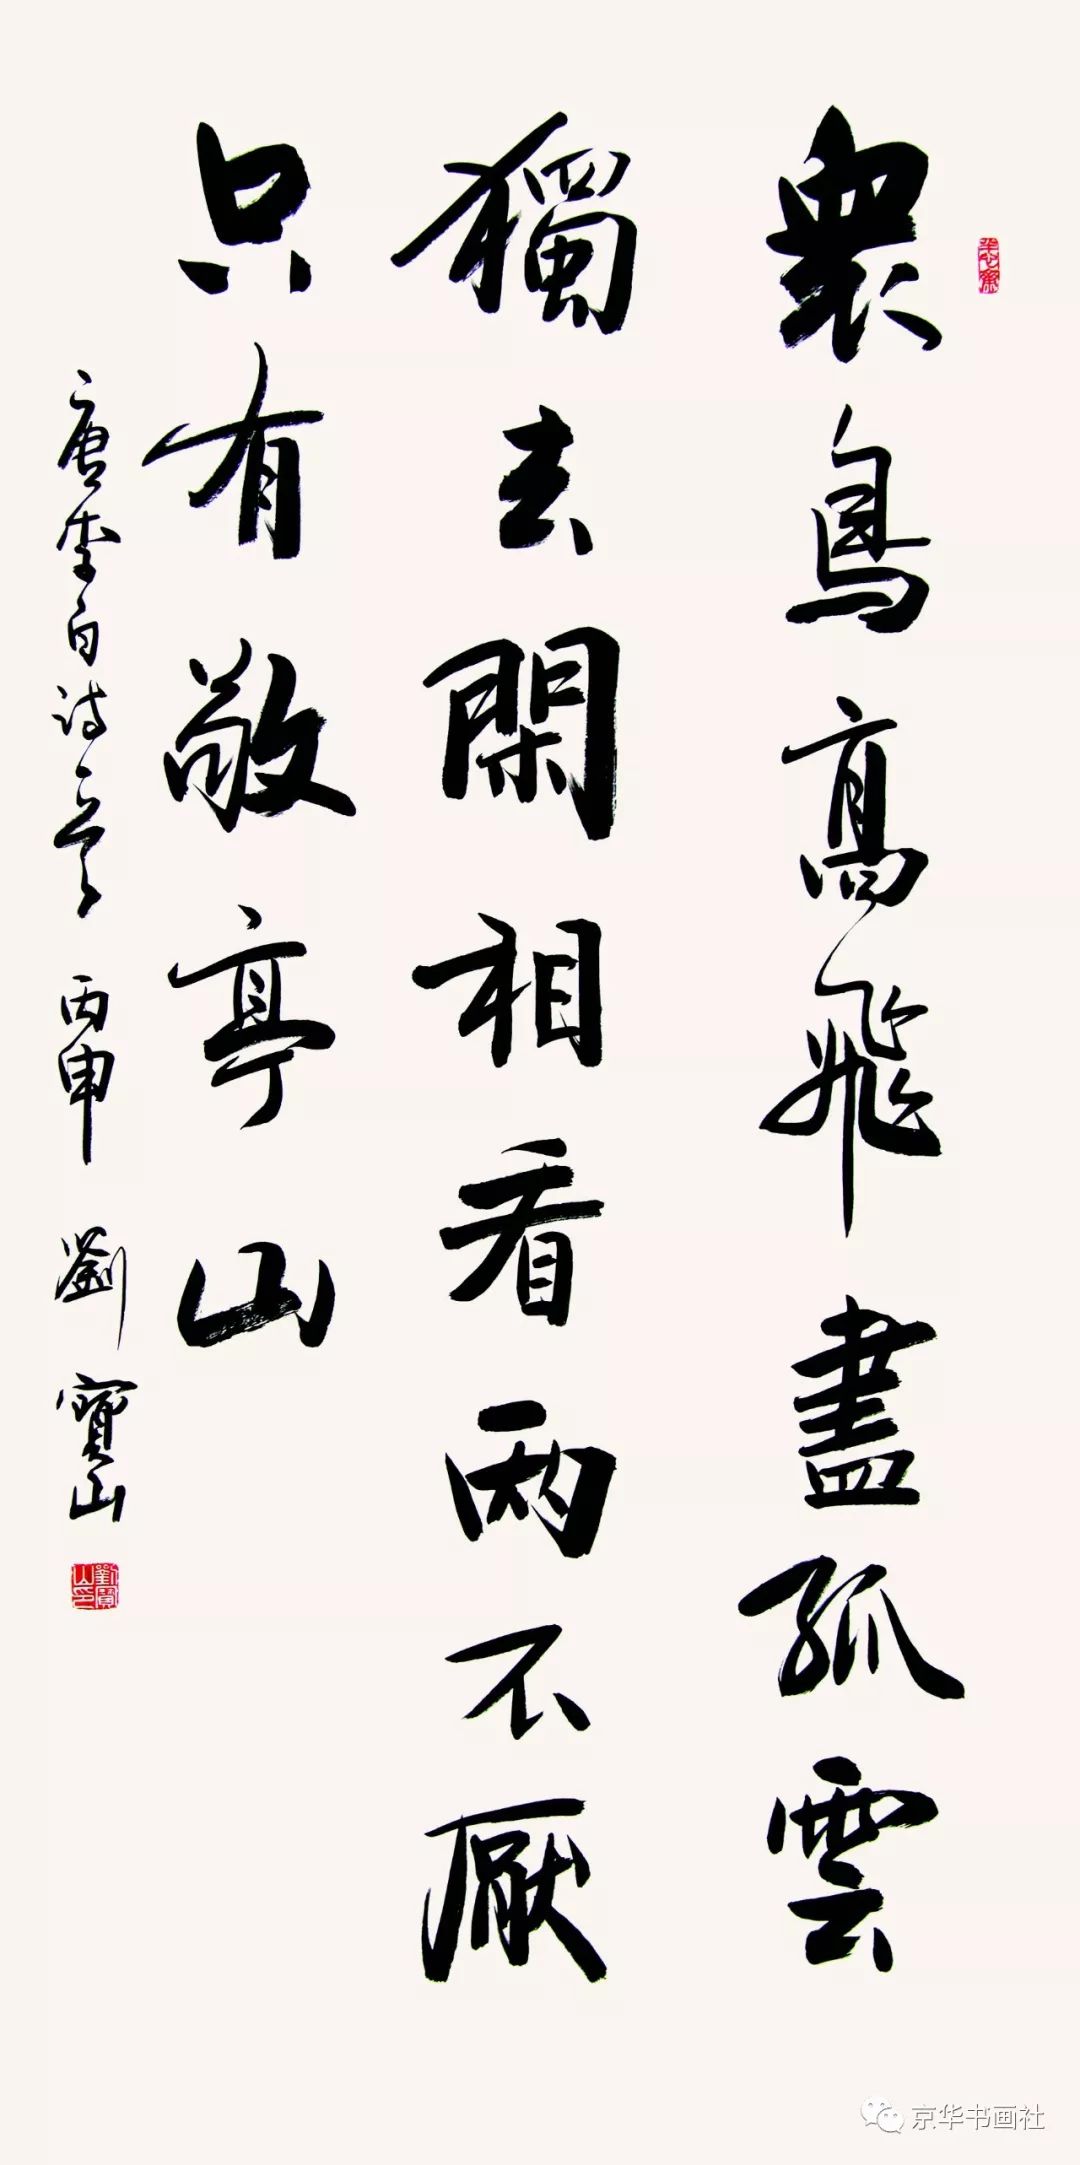 衆鳥高飛盡孤雲
獨去閑相看兩不厭
只有敬亭山
唐李白诗一首 丙申 劉寶山
劉寶山印
京华书画社